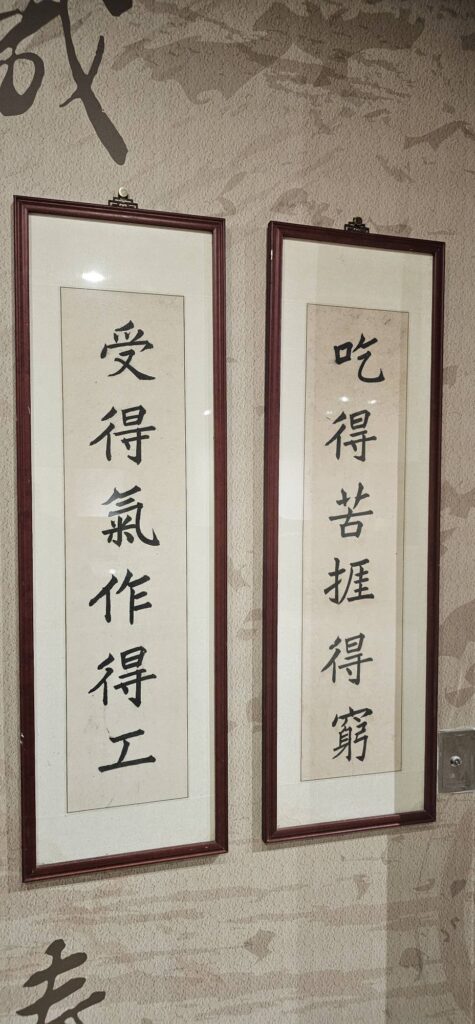 吃得苦捱得窮
受得氣作得工